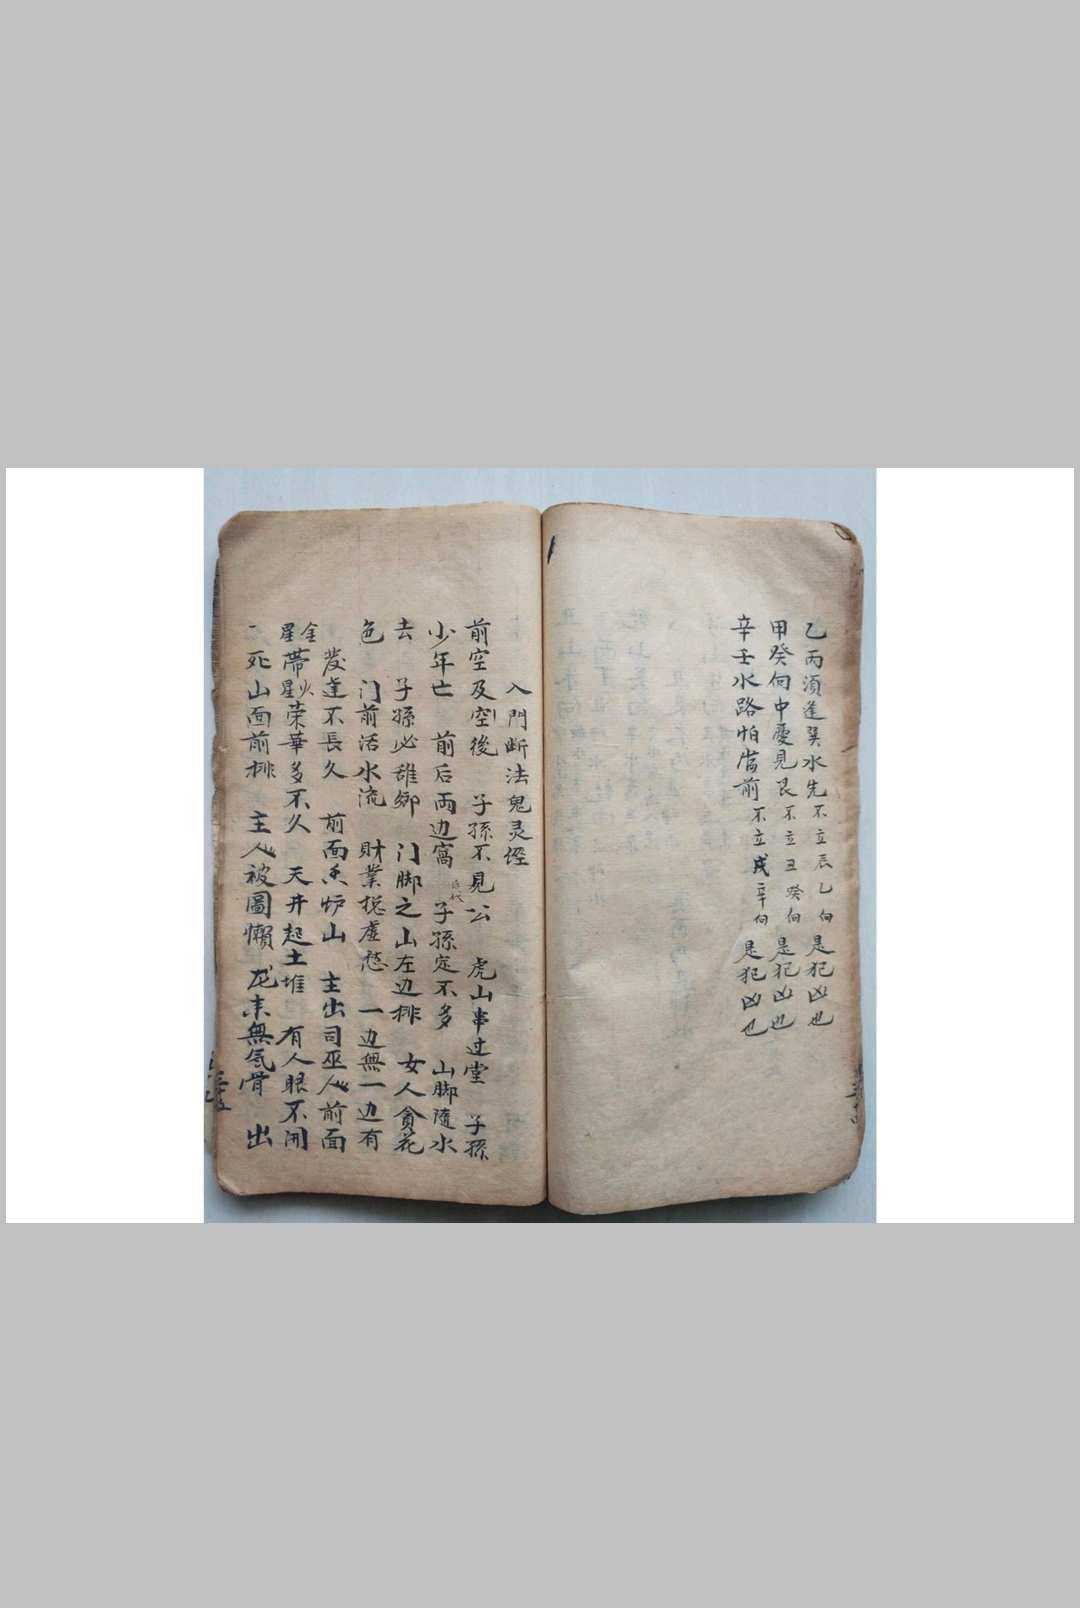 乙丙湏逢巽水先 不立辰乙向 是犯凶也
甲癸向中憂見艮 不立丑癸向 是犯凶也
辛壬水路怕當前 不立戌辛向 是犯凶也
入門断法鬼灵経
前空及空後 子孫不見公 虎山串过堂 子孫
少年亡 前后両边窩 子孫定不多 山脚隨水
去 子孫必離鄉 门脚之山左边排 女人貪花
色 门前活水流 財業捴虚愁 一边無一边有
发達不長久 前面香炉山 主出司巫人 前面
金星帯火星 荣華多不久 天井起土堆 有人眼不開
一死山面前排 主人被圖懶 龙来無気骨 出